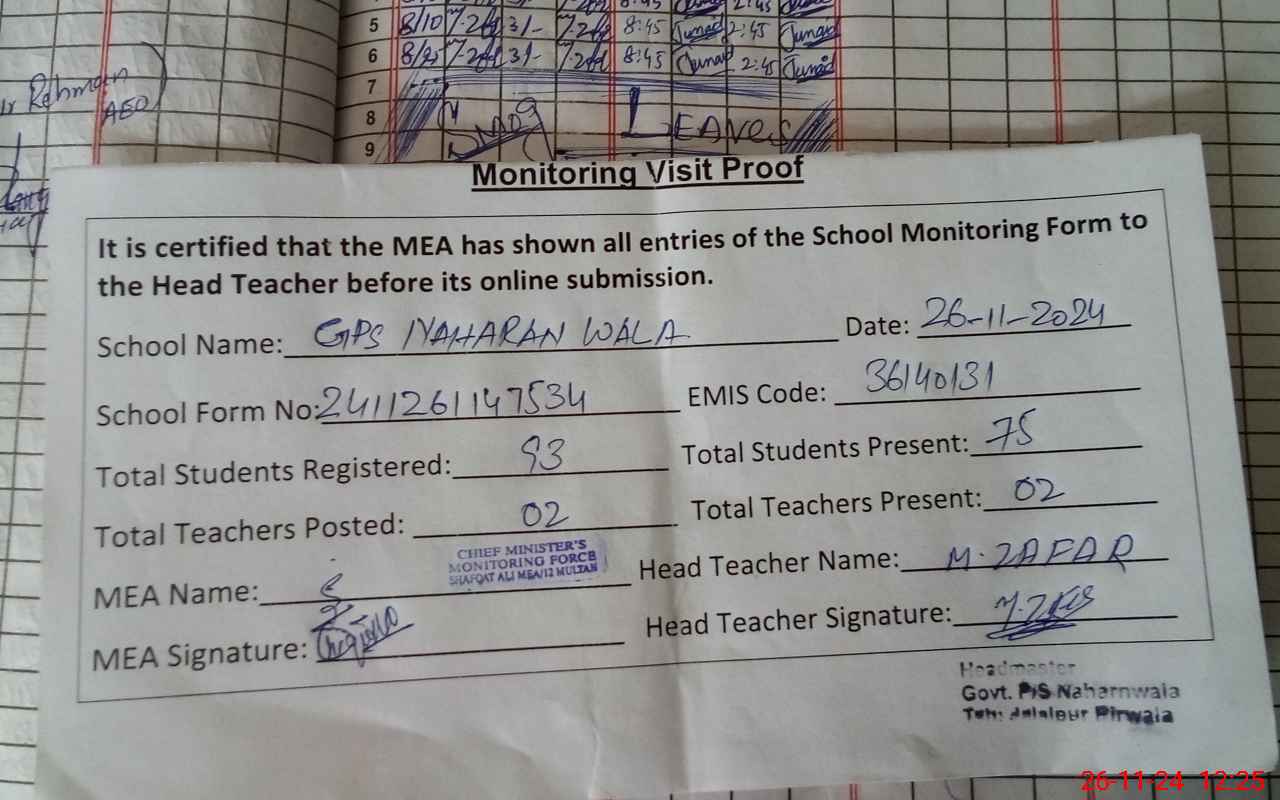 5 8/10 7-2af 31- 7-2af 8:45 Junaid 2:45 Junaid
6 8/25 7-2af 31- 7-2af 8:45 Junaid 2:45 Junaid
7
8 LEAVES
9
Rehman
AEO
Monitoring Visit Proof
It is certified that the MEA has shown all entries of the School Monitoring Form to
the Head Teacher before its online submission.
School Name: GPS NAHARAN WALA Date: 26-11-2024
School Form No: 2411261147534 EMIS Code: 36140131
Total Students Registered: 93 Total Students Present: 75
Total Teachers Posted: 02 Total Teachers Present: 02
CHIEF MINISTER'S
MONITORING FORCE
SHAFQAT ALI MEA/12 MULTAN
MEA Name: Head Teacher Name: M.ZAFAR
MEA Signature: Head Teacher Signature:
Headmaster
Govt. P/S Naharnwala
Teh: Jalalpur Pirwala
26-11-24 12:25